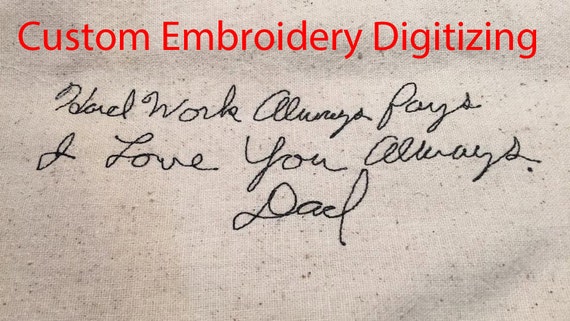 Custom Embroidery Digitizing
Hard Work Always Pays
I Love You Always.
Dad